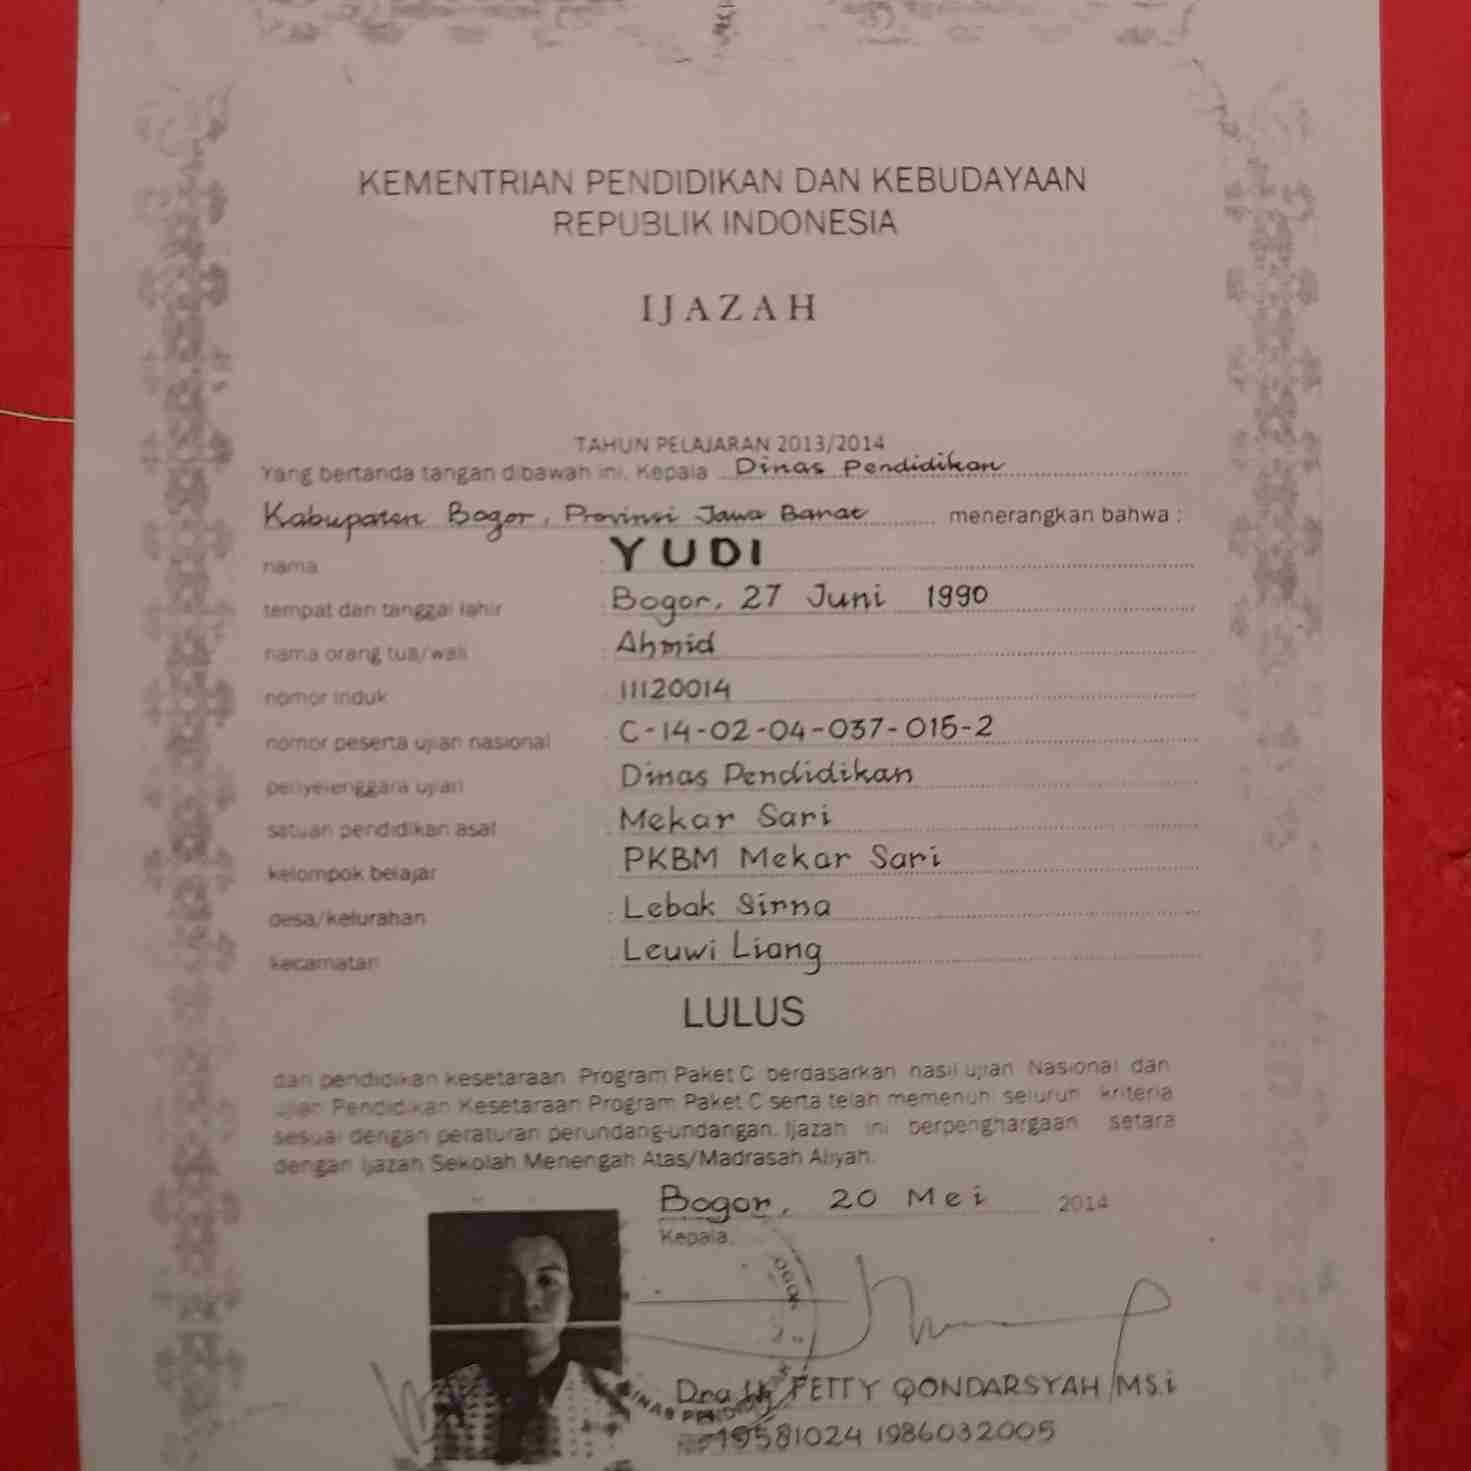 KEMENTRIAN PENDIDIKAN DAN KEBUDAYAAN
REPUBLIK INDONESIA
IJAZAH
TAHUN PELAJARAN 2013/2014
Yang bertanda tangan dibawah ini, Kepala Dinas Pendidikan
Kabupaten Bogor, Provinsi Jawa Barat menerangkan bahwa :
nama : YUDI
tempat dan tanggal lahir : Bogor, 27 Juni 1990
nama orang tua/wali : Ahmid
nomor induk : 11120014
nomor peserta ujian nasional : C-14-02-04-037-015-2
penyelenggara ujian : Dinas Pendidikan
satuan pendidikan asal : Mekar Sari
kelompok belajar : PKBM Mekar Sari
desa/kelurahan : Lebak Sirna
kecamatan : Leuwi Liang
LULUS
dari pendidikan kesetaraan Program Paket C berdasarkan hasil ujian Nasional dan
ujian Pendidikan Kesetaraan Program Paket C serta telah memenuhi seluruh kriteria
sesuai dengan peraturan perundang-undangan. Ijazah ini berpenghargaan setara
dengan Ijazah Sekolah Menengah Atas/Madrasah Aliyah.
Bogor, 20 Mei 2014
Kepala,
FETTY QONDARSYAH MSi
NIP 19581024 1986032005